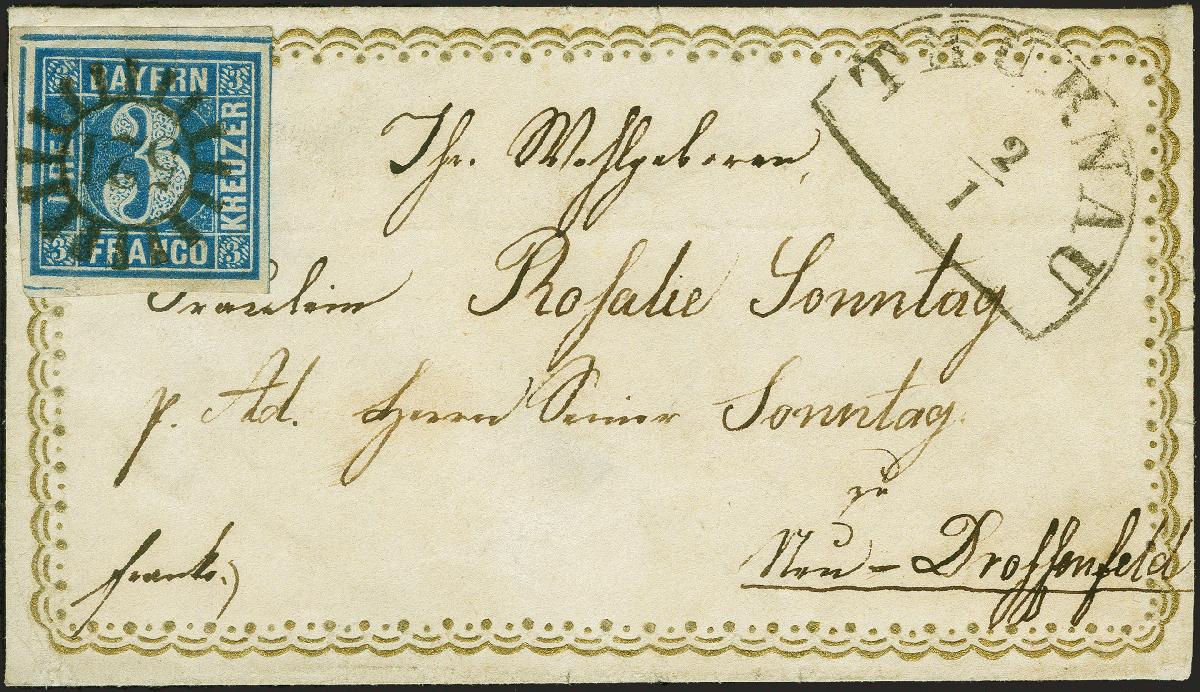 3 BAYERN 3
KREUZER
FRANCO
3 3
THURNAU
2
1
Ihr. Wohlgeboren,
Fräulein Rosalie Sonntag
p. Ad. Herrn Sonntag.
zu
Neu-Drossenfeld
franko.